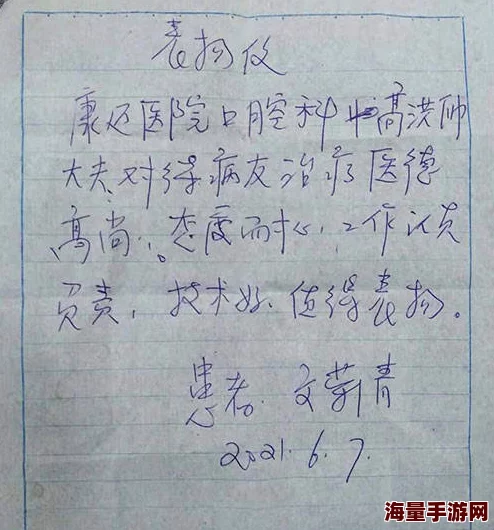 表扬仪
康还医院口腔科中高洪帅
大夫对待病友治疗医德
高尚，态度而心，工作认真
负责，技术好，值得表扬。
患者 文菊青
2021.6.7.
海量手游网